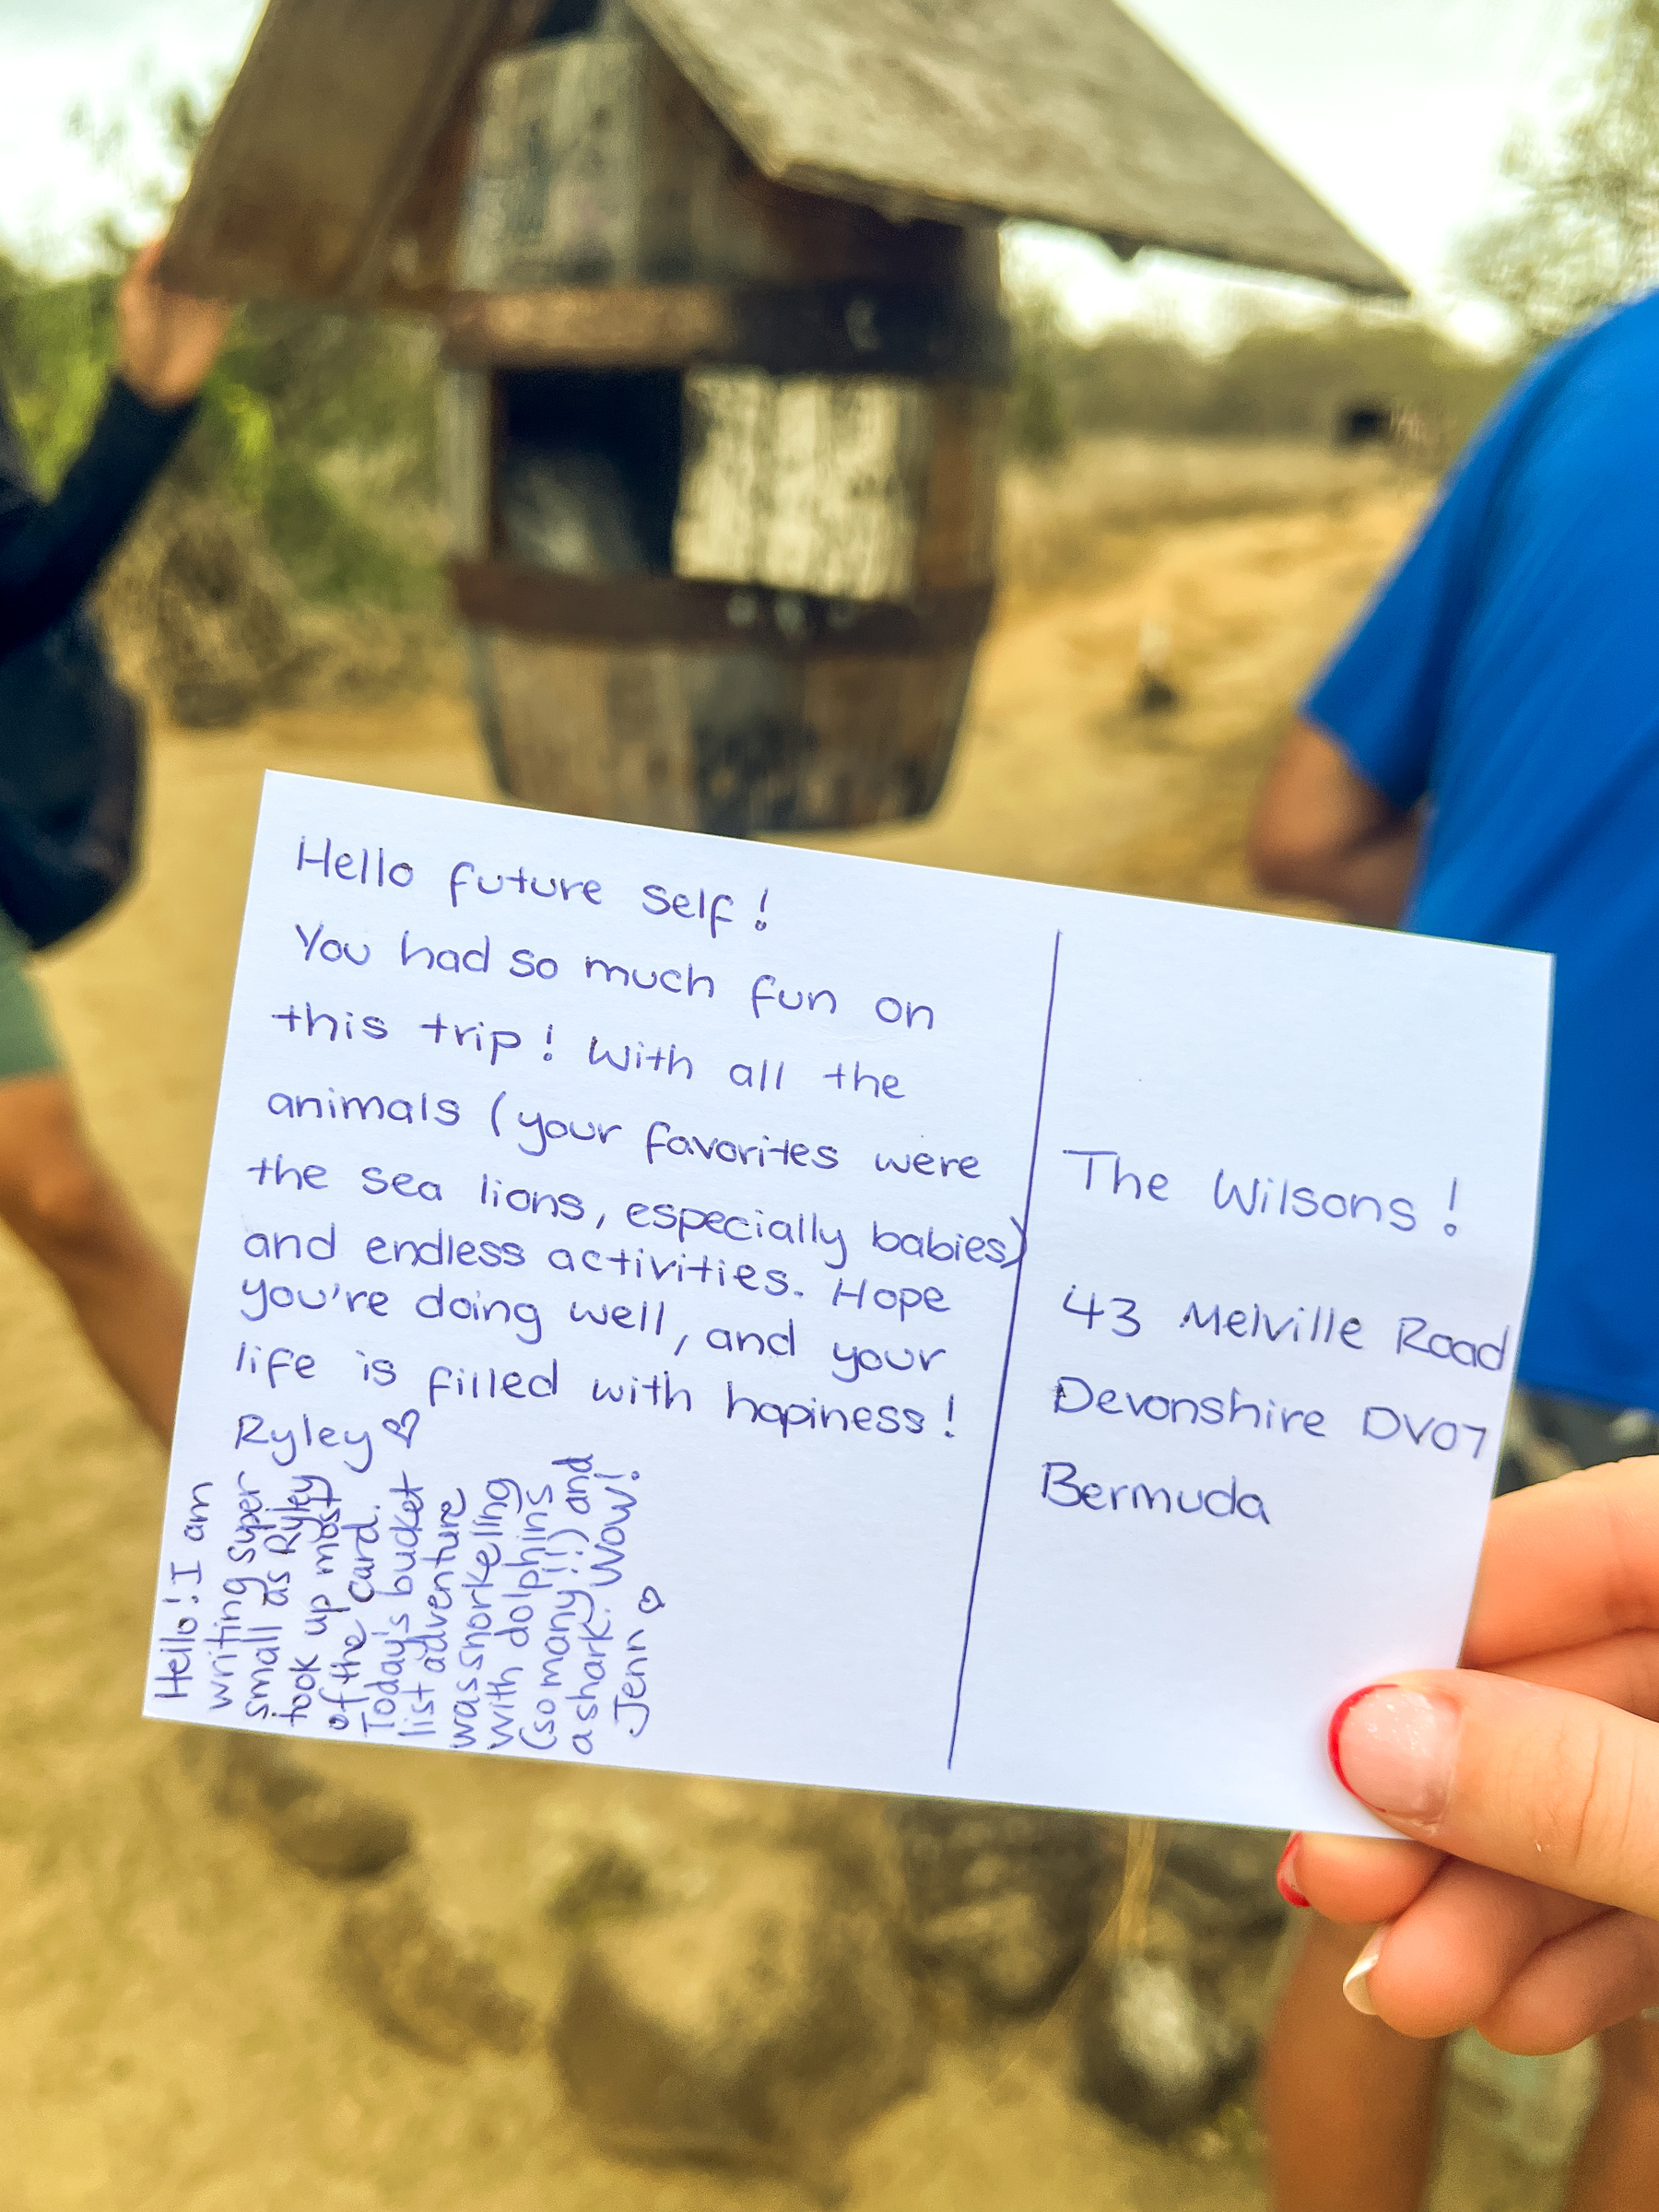 Hello future self!
You had so much fun on
this trip! With all the
animals (your favorites were
the sea lions, especially babies)
and endless activities. Hope
you're doing well, and your
life is filled with hapiness!
Ryley ♡
Hello! I am
writing super
small as Ryley
took up most
of the card.
Today's bucket
list adventure
was snorkelling
with dolphins
(so many!!) and
a shark. Wow!
Jenn ♡
The Wilsons!
43 Melville Road
Devonshire DV07
Bermuda